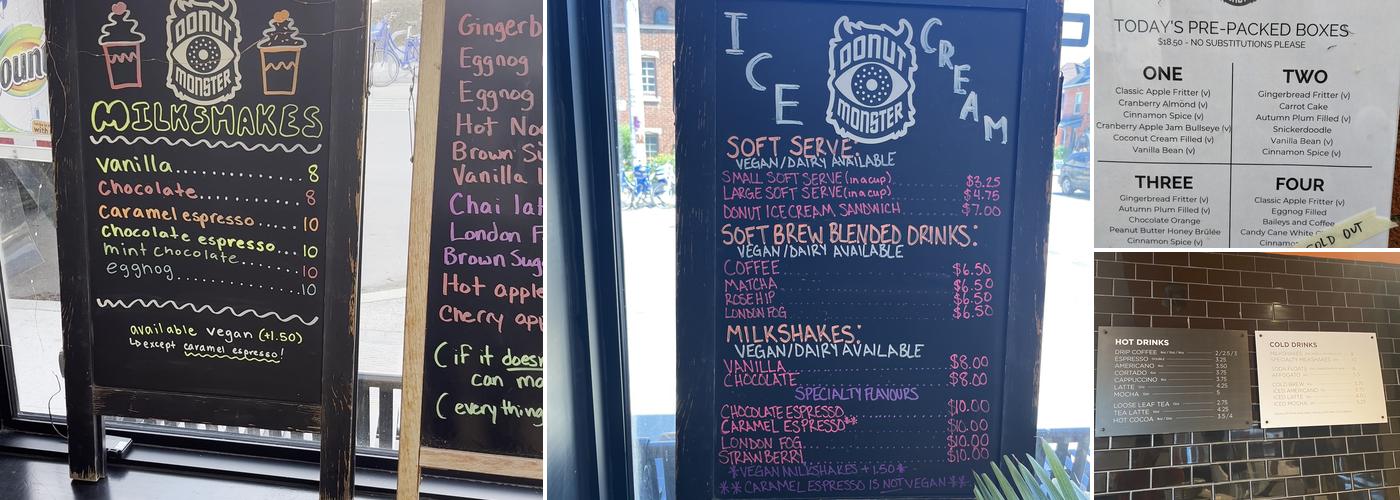 DONUT
MONSTER
MILKSHAKES
vanilla 8
Chocolate 8
Caramel espresso 10
Chocolate espresso 10
mint chocolate 10
eggnog 10
available vegan (+1.50)
↳ except caramel espresso!
Gingerb
Eggnog
Eggnog
Hot
Brown
Vanilla
Chai
London
Brown
Hot
Cherry
(if it
can
(every
ICE CREAM
DONUT
MONSTER
SOFT SERVE:
VEGAN/DAIRY AVAILABLE
SMALL SOFT SERVE (in a cup) $3.25
LARGE SOFT SERVE (in a cup) $4.75
DONUT ICE CREAM SANDWICH $7.00
SOFT BREW BLENDED DRINKS:
VEGAN/DAIRY AVAILABLE
COFFEE $6.50
MATCHA $6.50
ROSEHIP $6.50
LONDON FOG $6.50
MILKSHAKES:
VEGAN/DAIRY AVAILABLE
VANILLA $8.00
CHOCOLATE $8.00
SPECIALTY FLAVOURS
CHOCOLATE ESPRESSO $10.00
CARAMEL ESPRESSO** $10.00
LONDON FOG $10.00
STRAWBERRY $10.00
*VEGAN MILKSHAKES +1.50*
**CARAMEL ESPRESSO IS NOT VEGAN**
TODAY'S PRE-PACKED BOXES
$18.50 - NO SUBSTITUTIONS PLEASE
ONE
Classic Apple Fritter (v)
Cranberry Almond (v)
Cinnamon Spice (v)
Cranberry Apple Jam Bullseye (v)
Coconut Cream Filled (v)
Vanilla Bean (v)
TWO
Gingerbread Fritter (v)
Carrot Cake
Autumn Plum Filled (v)
Snickerdoodle
Vanilla Bean (v)
Cinnamon Spice (v)
THREE
Gingerbread Fritter (v)
Autumn Plum Filled (v)
Chocolate Orange
Peanut Butter Honey Brûlée
Cinnamon Spice (v)
FOUR
Classic Apple Fritter (v)
Eggnog Filled
Baileys and Coffee
Candy Cane White
Cinnamon
SOLD OUT
HOT DRINKS
DRIP COFFEE 2/2.5/3
ESPRESSO 3.25
AMERICANO 3.50
CORTADO 3.75
CAPPUCCINO 3.75
LATTE 4.25
MOCHA 5
LOOSE LEAF TEA 2.75
TEA LATTE 4.25
HOT COCOA 3.5/4
COLD DRINKS
MILKSHAKES
SPECIALTY MILKSHAKES
SODA FLOATS
AFFOGATO
COLD BREW
ICED AMERICANO
ICED LATTE
ICED MOCHA